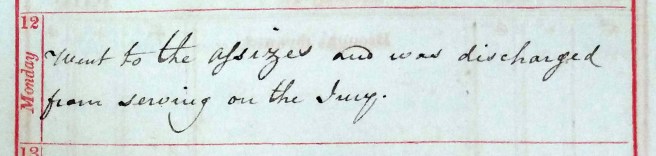 12
Monday
Went to the assizes and was discharged
from serving on the Jury.
13